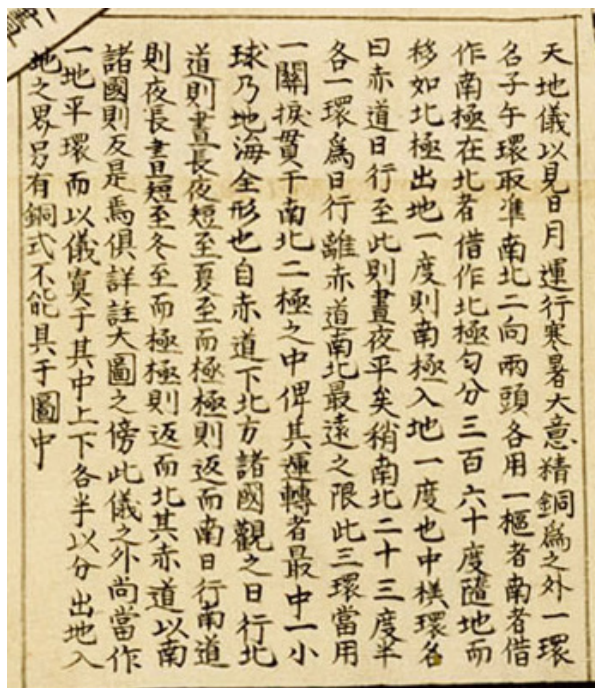 天地儀以見日月運行寒暑大意精銅爲之外一環
名子午環取準南北二向兩頭各用一樞者南者借
作南極在北者借作北極勻分三百六十度隨地而
移如北極出地一度則南極入地一度也中橫環名
曰赤道日行至此則晝夜平矣稍南北二十三度半
各一環爲日行離赤道南北最遠之限此三環當用
一關捩貫于南北二極之中俾其運轉者最中一小
球乃地海全形也自赤道下北方諸國觀之日行北
道則晝長夜短至夏至而極極則返而南日行南道
則夜長晝短至冬至而極極則返而北其赤道以南
諸國則反是焉俱詳註大圖之傍此儀之外尚當作
一地平環而以儀寘于其中上下各半以分出地入
地之界另有銅式不能具于圖中